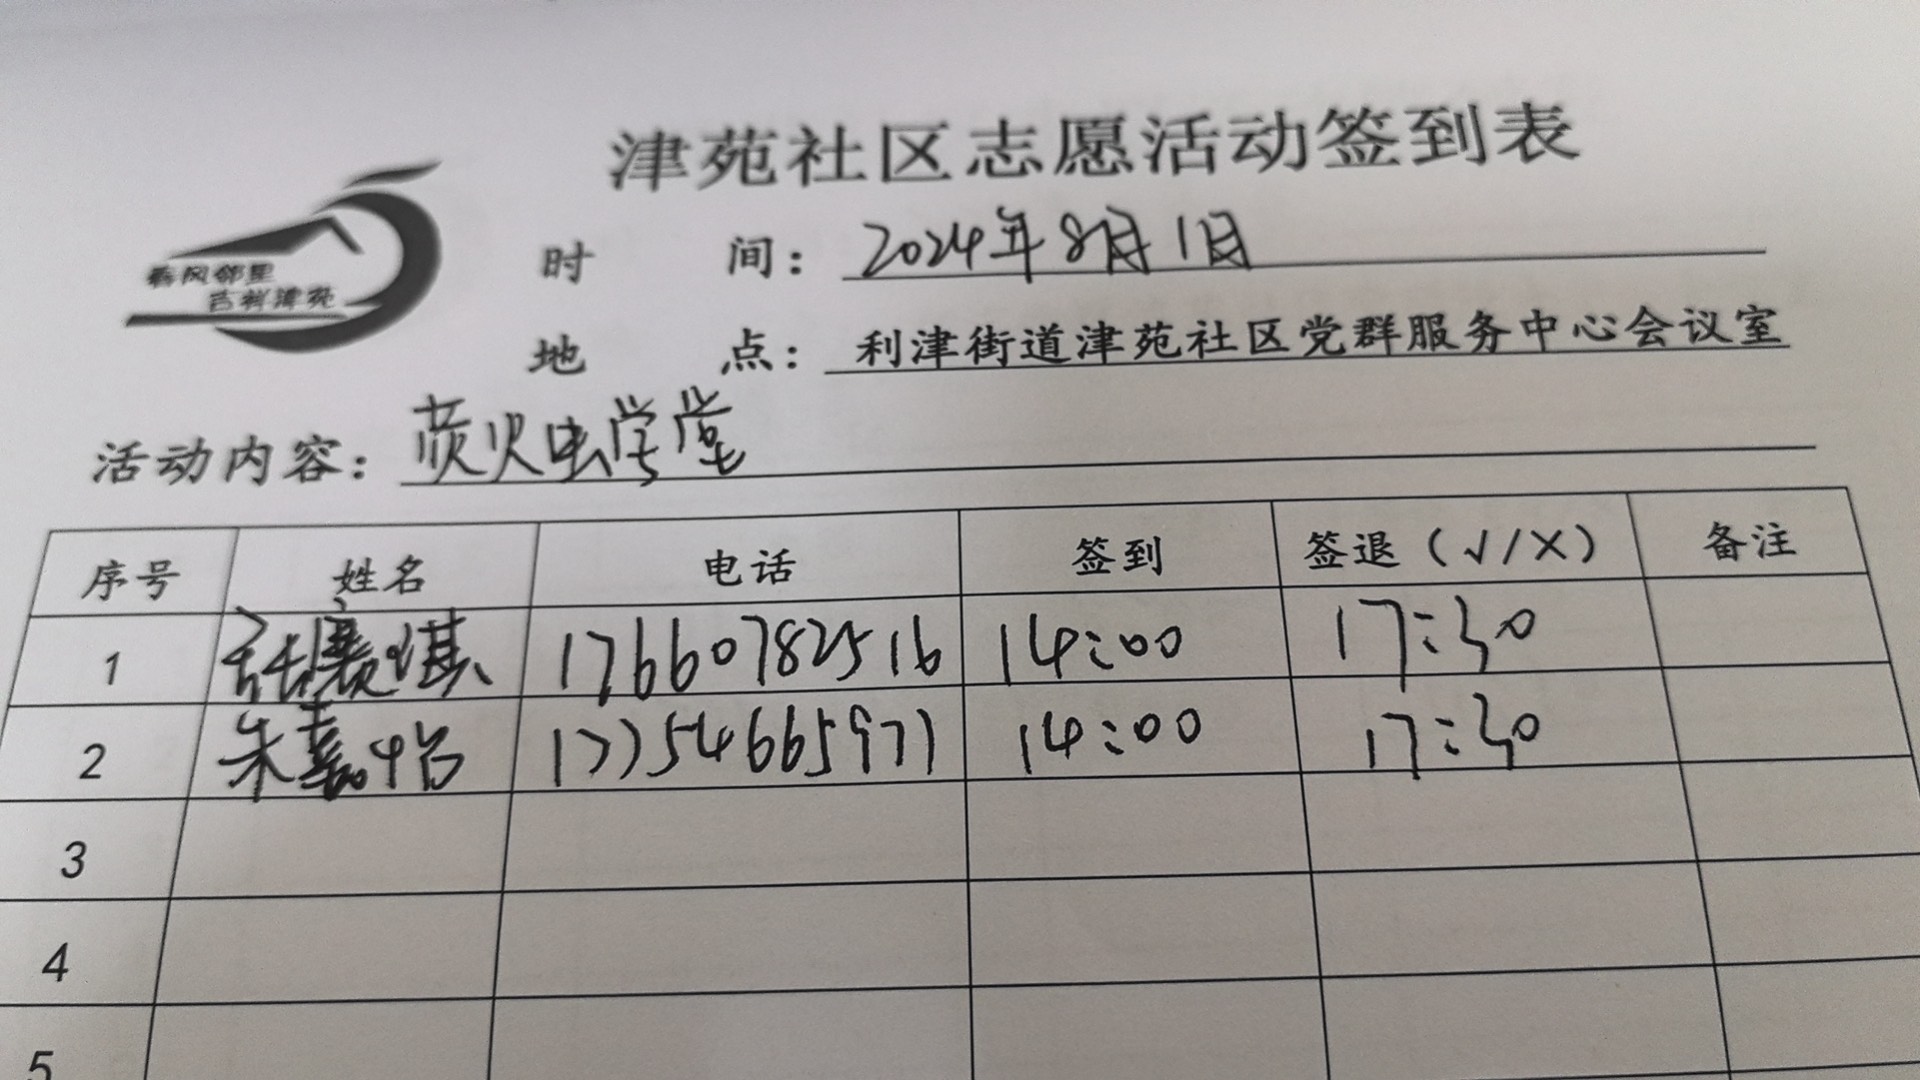 津苑社区志愿活动签到表
春风邻里
吉祥津苑
时 间：2024年8月1日
地 点：利津街道津苑社区党群服务中心会议室
活动内容：荧火虫学堂
序号 姓名 电话 签到 签退（√/×） 备注
1 17660782516 14:00 17:30
2 朱嘉怡 17754665971 14:00 17:30
3
4
5